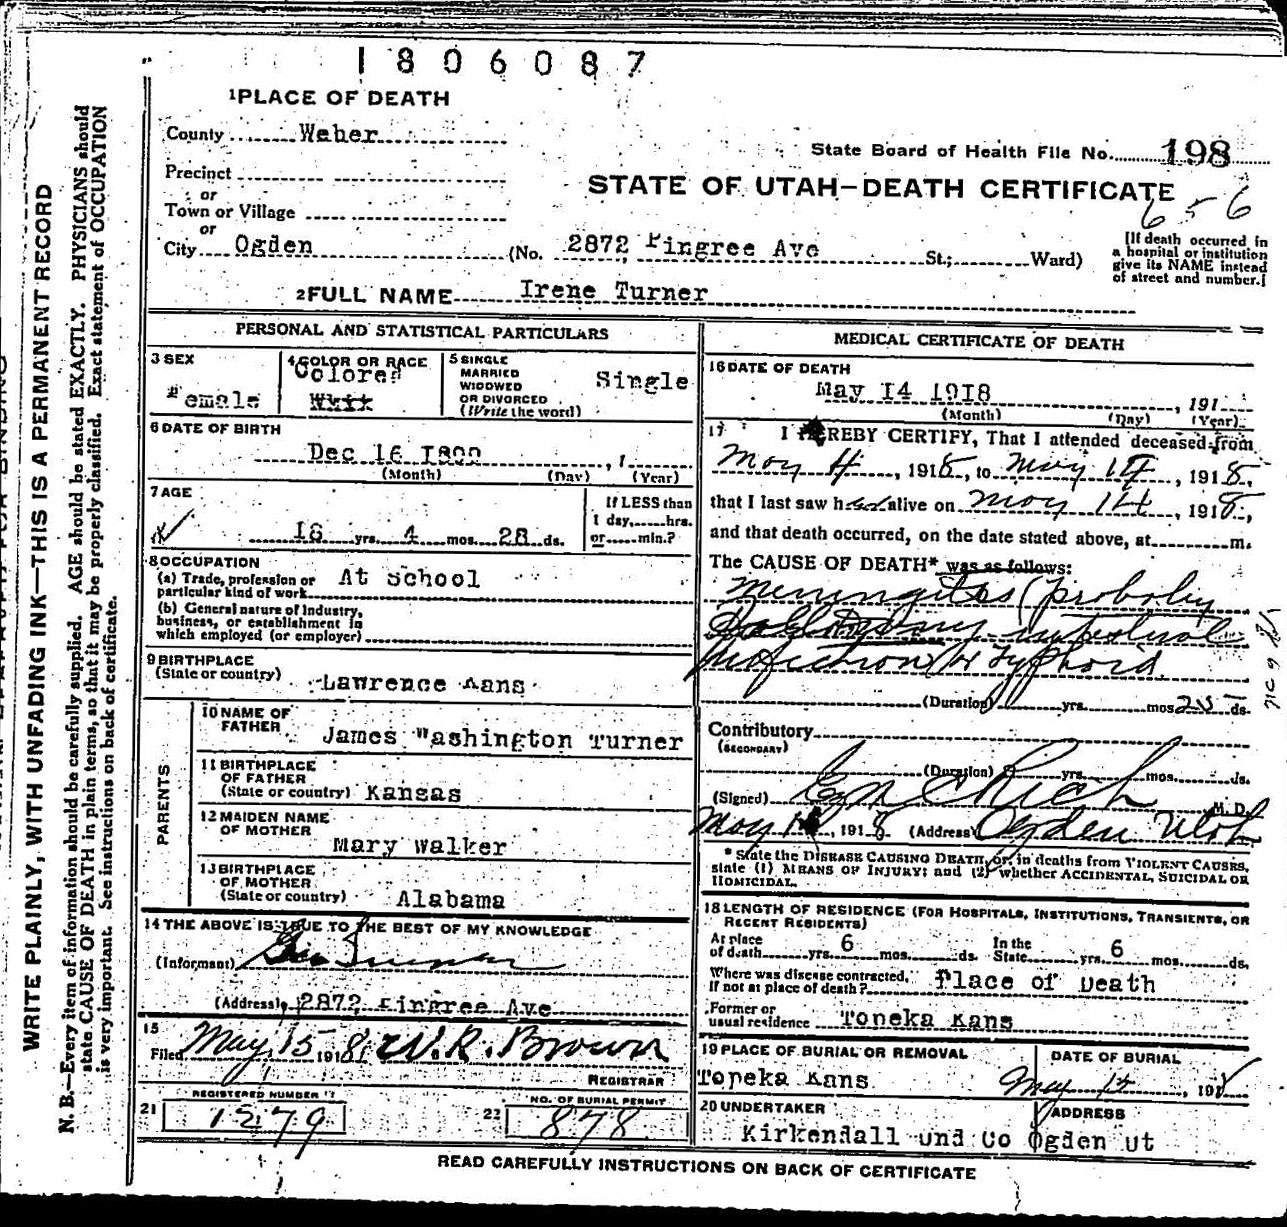 1806087
1 PLACE OF DEATH
County Weber
State Board of Health File No. 198
Precinct
STATE OF UTAH—DEATH CERTIFICATE
or
656
Town or Village
or
City Ogden (No. 2872 Pingree Ave St.; Ward)
[If death occurred in
a hospital or institution
give its NAME instead
of street and number.]
2 FULL NAME Irene Turner
PERSONAL AND STATISTICAL PARTICULARS
3 SEX
Female
4 COLOR OR RACE
Colored
5 SINGLE
MARRIED
WIDOWED
OR DIVORCED
(Write the word)
Single
6 DATE OF BIRTH
Dec 16 , 1
(Month) (Day) (Year)
7 AGE
18 yrs. 4 mos. 28 ds.
If LESS than
1 day, hrs.
or min.?
8 OCCUPATION
(a) Trade, profession or
particular kind of work At School
(b) General nature of Industry,
business, or establishment in
which employed (or employer)
9 BIRTHPLACE
(State or country) Lawrence Kans
PARENTS
10 NAME OF
FATHER James Washington Turner
11 BIRTHPLACE
OF FATHER
(State or country) Kansas
12 MAIDEN NAME
OF MOTHER
Mary Walker
13 BIRTHPLACE
OF MOTHER
(State or country) Alabama
14 THE ABOVE IS TRUE TO THE BEST OF MY KNOWLEDGE
(Informant) Turner
(Address) 2872 Pingree Ave
15
Filed May 15 1918 W. R. Brown
REGISTRAR
REGISTERED NUMBER
21 1279
NO. OF BURIAL PERMIT
22 878
MEDICAL CERTIFICATE OF DEATH
16 DATE OF DEATH
May 14 1918 , 191
(Month) (Day) (Year)
17 I HEREBY CERTIFY, That I attended deceased from
May 4 , 1918, to May 14 , 1918,
that I last saw her alive on May 14 , 1918,
and that death occurred, on the date stated above, at m.
The CAUSE OF DEATH* was as follows:
Meningitis (probably
intestinal
infection) or Typhoid
(Duration) yrs. mos. ds.
Contributory
(SECONDARY)
(Duration) yrs. mos. ds.
(Signed) Rich M. D.
May , 1918 (Address) Ogden Utah
* State the DISEASE CAUSING DEATH, or, in deaths from VIOLENT CAUSES,
state (1) MEANS OF INJURY; and (2) whether ACCIDENTAL, SUICIDAL OR
HOMICIDAL.
18 LENGTH OF RESIDENCE (FOR HOSPITALS, INSTITUTIONS, TRANSIENTS, OR
RECENT RESIDENTS)
At place
of death yrs. 6 mos. ds.
In the
State yrs. 6 mos. ds.
Where was disease contracted,
If not at place of death? Place of Death
Former or
usual residence Topeka Kans
19 PLACE OF BURIAL OR REMOVAL
Topeka Kans
DATE OF BURIAL
May , 191
20 UNDERTAKER
Kirkendall Und Co
ADDRESS
Ogden Ut
READ CAREFULLY INSTRUCTIONS ON BACK OF CERTIFICATE
WRITE PLAINLY, WITH UNFADING INK—THIS IS A PERMANENT RECORD
N. B.—Every item of information should be carefully supplied. AGE should be stated EXACTLY. PHYSICIANS should
state CAUSE OF DEATH in plain terms, so that it may be properly classified. Exact statement of OCCUPATION
is very important. See instructions on back of certificate.